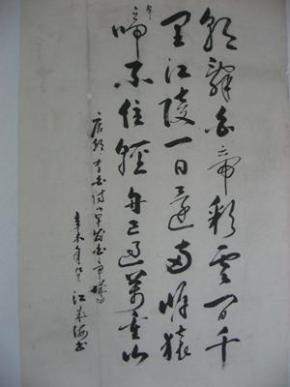 朝辞白帝彩云间千
里江陵一日还两岸猿
声啼不住轻舟已过万重山
唐朝李白诗早发白帝城
辛未年 江 书